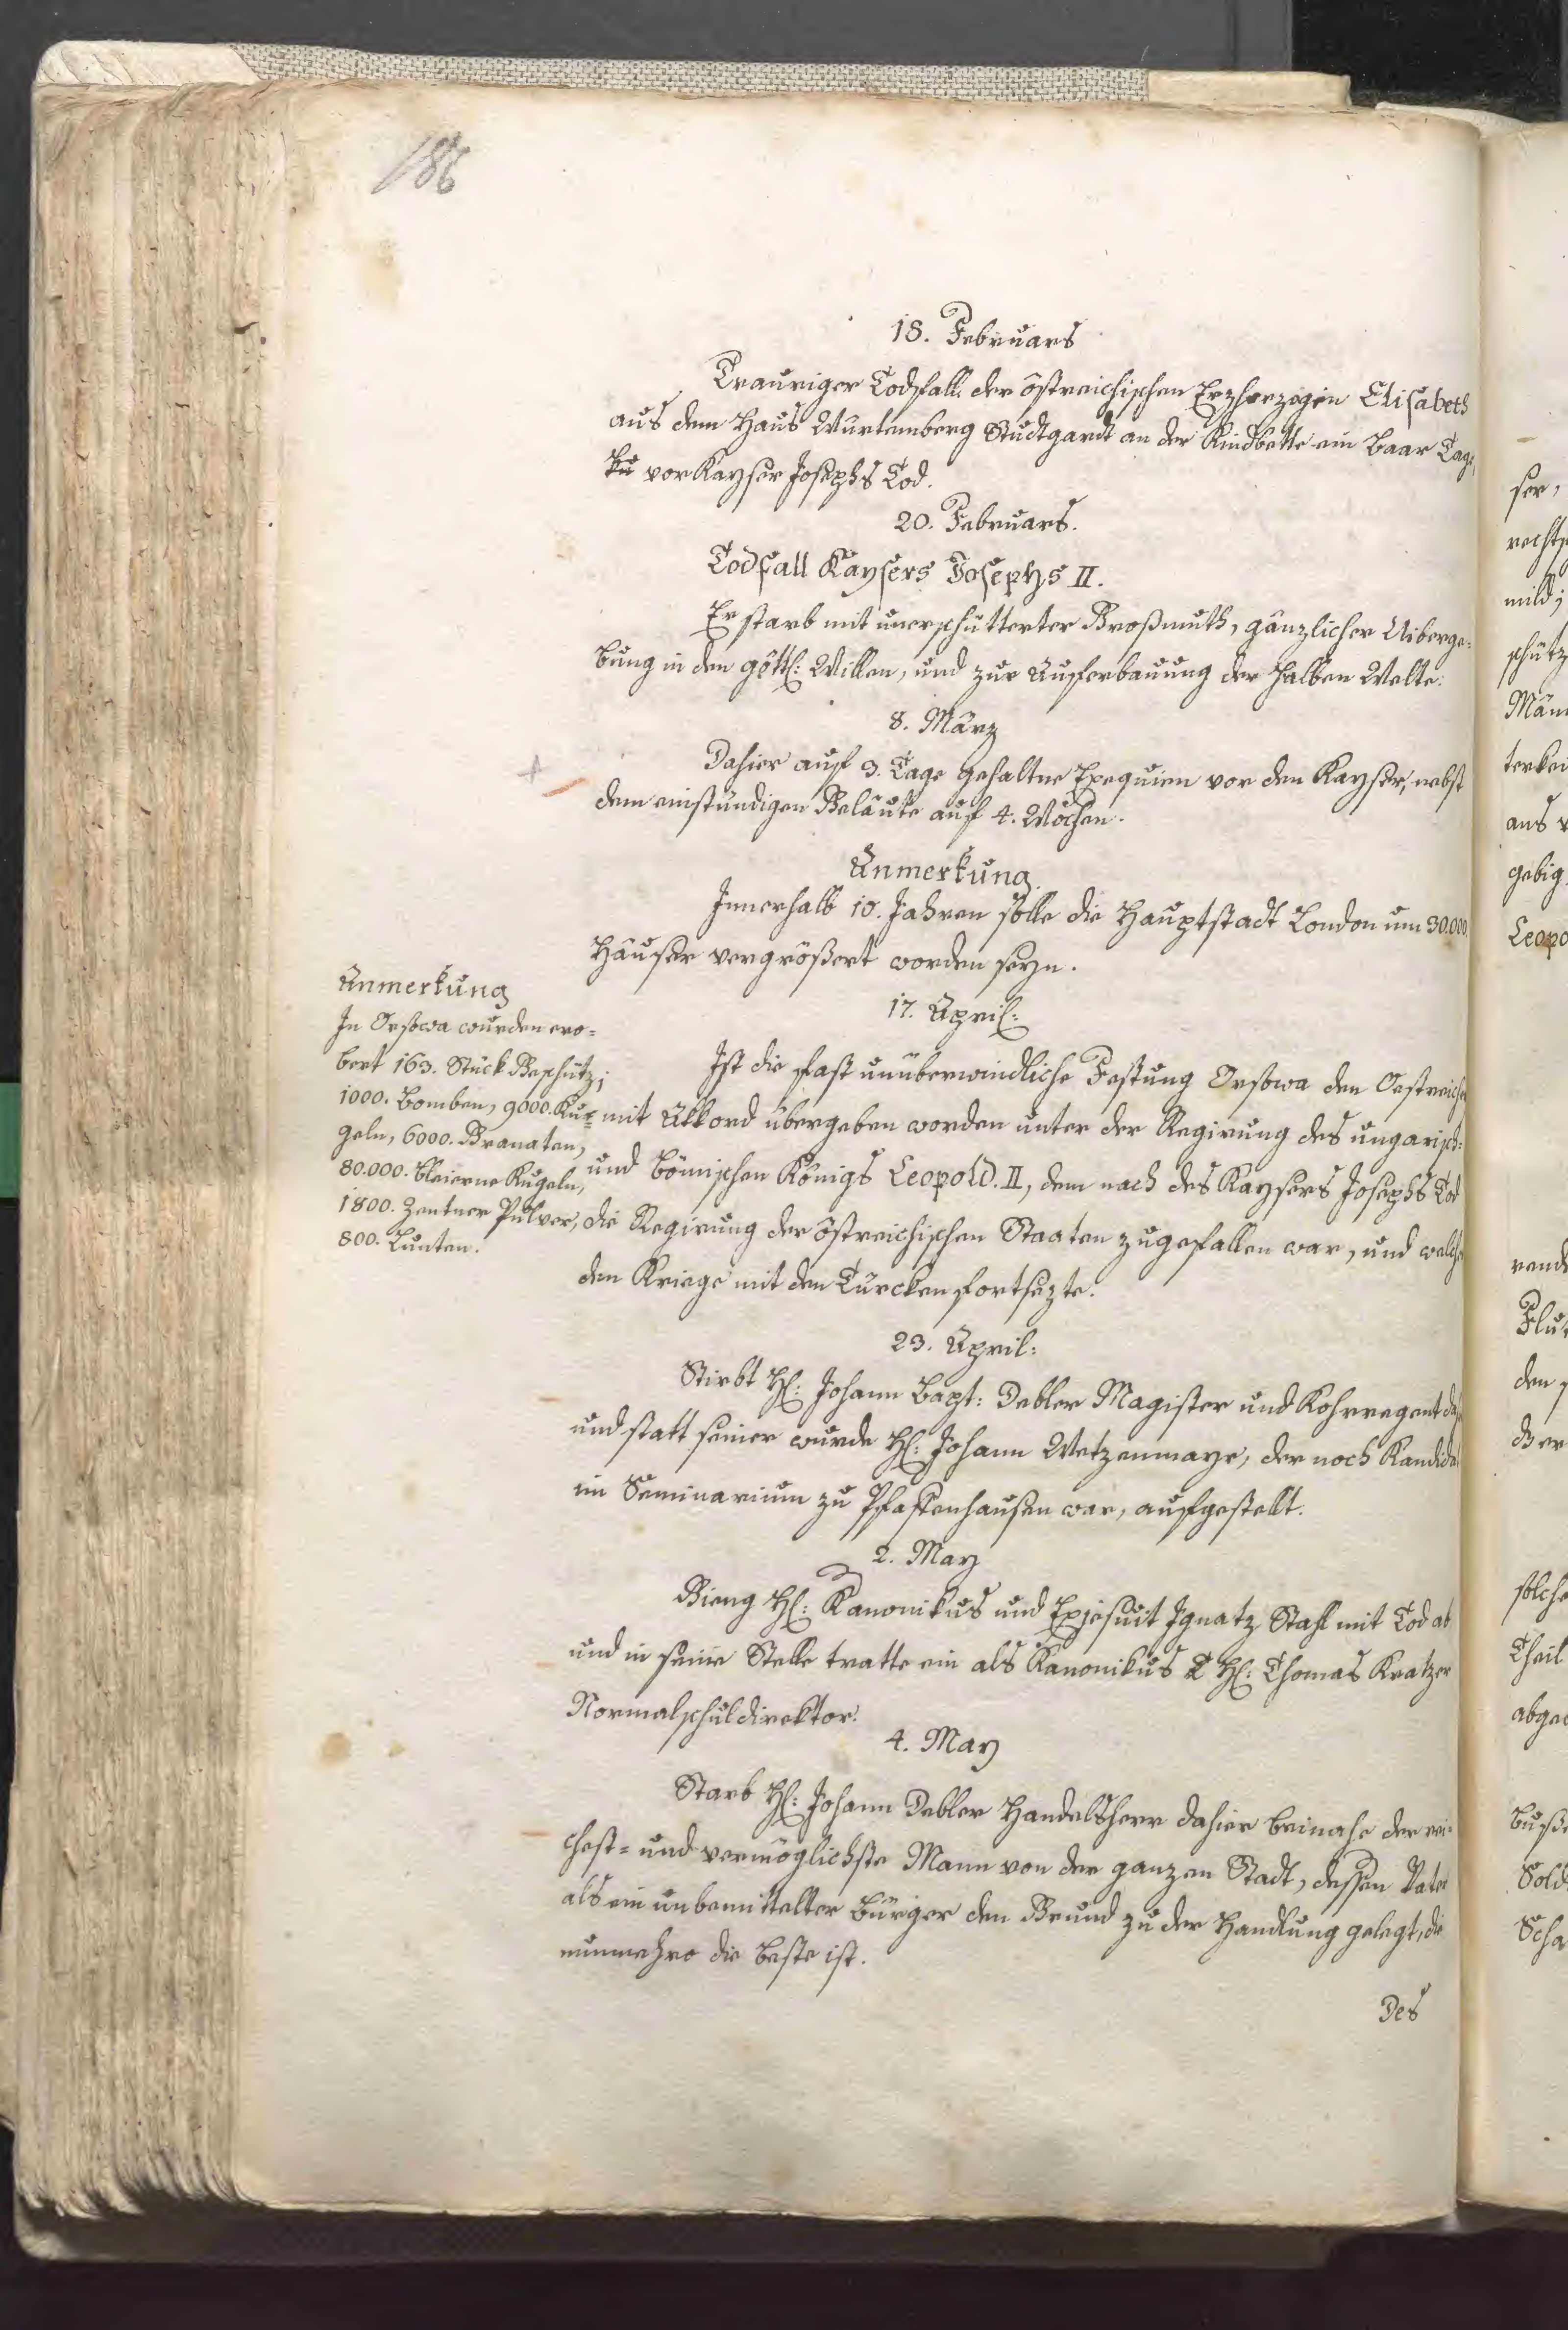 186
18. Februars
Trauriger Todfall der östreichischen Erzherzogin Elisabeth
aus dem Haus Würtemberg Studtgardt an der Kindbette ein baar Tage
vor Kayser Josephs Tod.
20. Februars.
Todfall Kaysers Josephs II.
Er starb mit unerschütterter Großmuth, gänzlicher Uiberge-
bung in den göttl: Willen, und zur Auferbauung der halben Welte.
8. März
Dahier auf 3. Tage gehaltne Exequien vor den Kayser, nebst
dem einstündigen Geläute auf 4. Wochen.
Anmerkung.
Innerhalb 10. Jahren solle die Hauptstadt London um 30.000.
Häuser vergrößert worden seyn.
17. April:
Ist die fast unüberwindliche Festung Orsowa den Oestreicher
mit Akkord übergeben worden unter der Regirung des ungarisch:
und bömischen Königs Leopold. II, dem nach des Kaysers Josephs Tod
die Regirung der östreichischen Staaten zugefallen war, und welcher
den Kriege mit den Türcken fortsezte.
Anmerkung
In Orsowa wurden ero-
bert 163. Stück Geschütz;
1000. Bomben, 9000. Ku-
geln, 6000. Granaten,
80.000. bleierne Kugeln,
1800. Zentner Pulver,
800. Lunten.
23. April:
Stirbt H: Johann Bapt: Debler Magister und Kohrregent
und statt seiner wurde H: Johann Wetzenmayr, der noch Kandidat
im Seminarium zu Pfaffenhausen war, aufgestellt.
2. May
Gieng H: Kanonikus und Exjesuit Ignatz Stahl mit Tod ab
und in seine Stelle tratte ein als Kanonikus H: Thomas Kratzer
Normalschuldirektor.
4. May
Starb H: Johann Debler Handelsherr dahier beinahe der rei-
chest- und vermöglichste Mann von der ganzen Stadt, dessen Vater
als ein unbemittelter Bürger den Grund zu der Handlung gelegt, die
nunmehro die beste ist.
Des